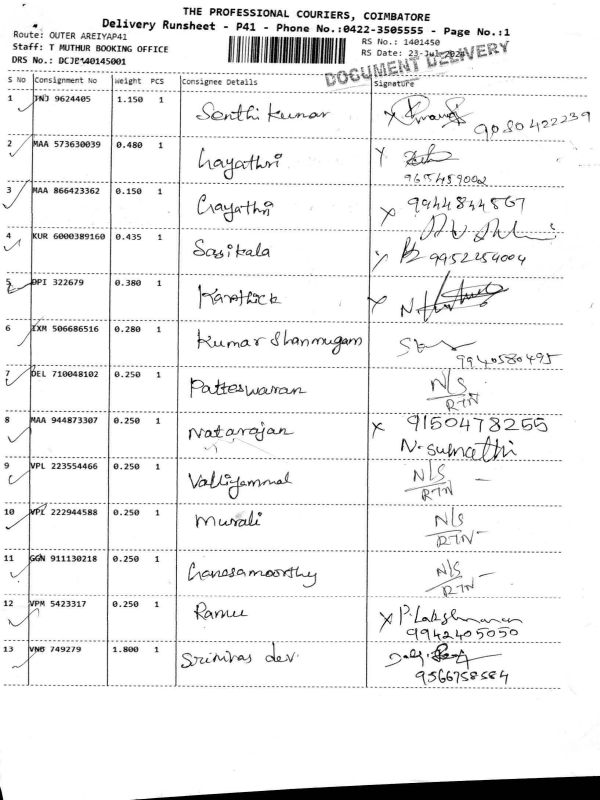 THE PROFESSIONAL COURIERS, COIMBATORE
Delivery Runsheet - P41 - Phone No.:0422-3505555 - Page No.:1
Route: OUTER AREIYAP41
RS No.: 1401450
Staff: T MUTHUR BOOKING OFFICE
RS Date: 23-Jul-2024
DRS No.:
DOCUMENT DELIVERY
S No Consignment No Weight PCS Consignee Details Signature
1 TNJ 9624405 1.150 1 Senthi kumar X 9080422239
2 MAA 573630039 0.480 1 Gayathri Y
965459002
3 MAA 866423362 0.150 1 Gayathri X 9944844567
4 KUR 6000389160 0.435 1 Sasikala Y 9952254004
5 DPI 322679 0.380 1 Karthick X
6 IXM 506686516 0.280 1 Kumar Shanmugam
9940580495
7 DEL 710048102 0.250 1 Patteswaran N/S
RTN
8 MAA 944873307 0.250 1 Natarajan X 9150478255
N. Sumathi
9 VPL 223554466 0.250 1 Valliyammal N/S -
RTN
10 VPL 222944588 0.250 1 Murali N/S
RTN -
11 GGN 911130218 0.250 1 Ganesamoorthy N/S -
RTN
12 VPM 5423317 0.250 1 Ramu X P. Lakshmanan
9942405050
13 VNB 749279 1.800 1 Srinivas dev.
9566758584